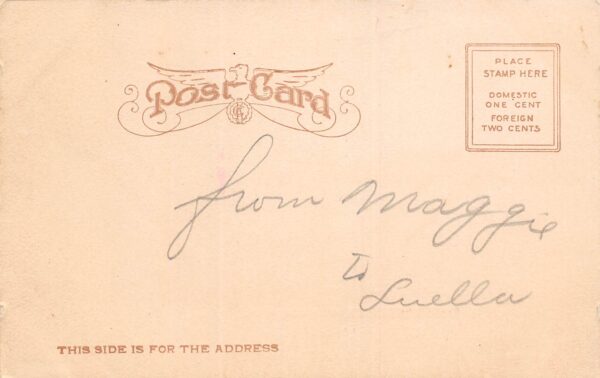 Post Card
PLACE
STAMP HERE
DOMESTIC
ONE CENT
FOREIGN
TWO CENTS
from Maggie
To
Luella
THIS SIDE IS FOR THE ADDRESS